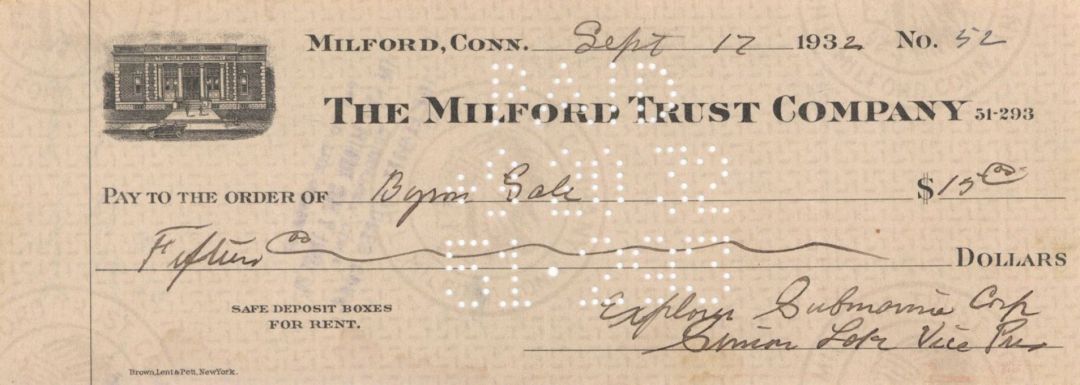 MILFORD, CONN. Sept 17 1932 No. 52
THE MILFORD TRUST COMPANY 51-293
PAID
PAY TO THE ORDER OF Byron $15 00
Fifteen 00 DOLLARS
51·293
SAFE DEPOSIT BOXES
FOR RENT.
Explorer Submarine Corp
Simon Lake Vice Pres
Brown, Lent & Pett, New York.